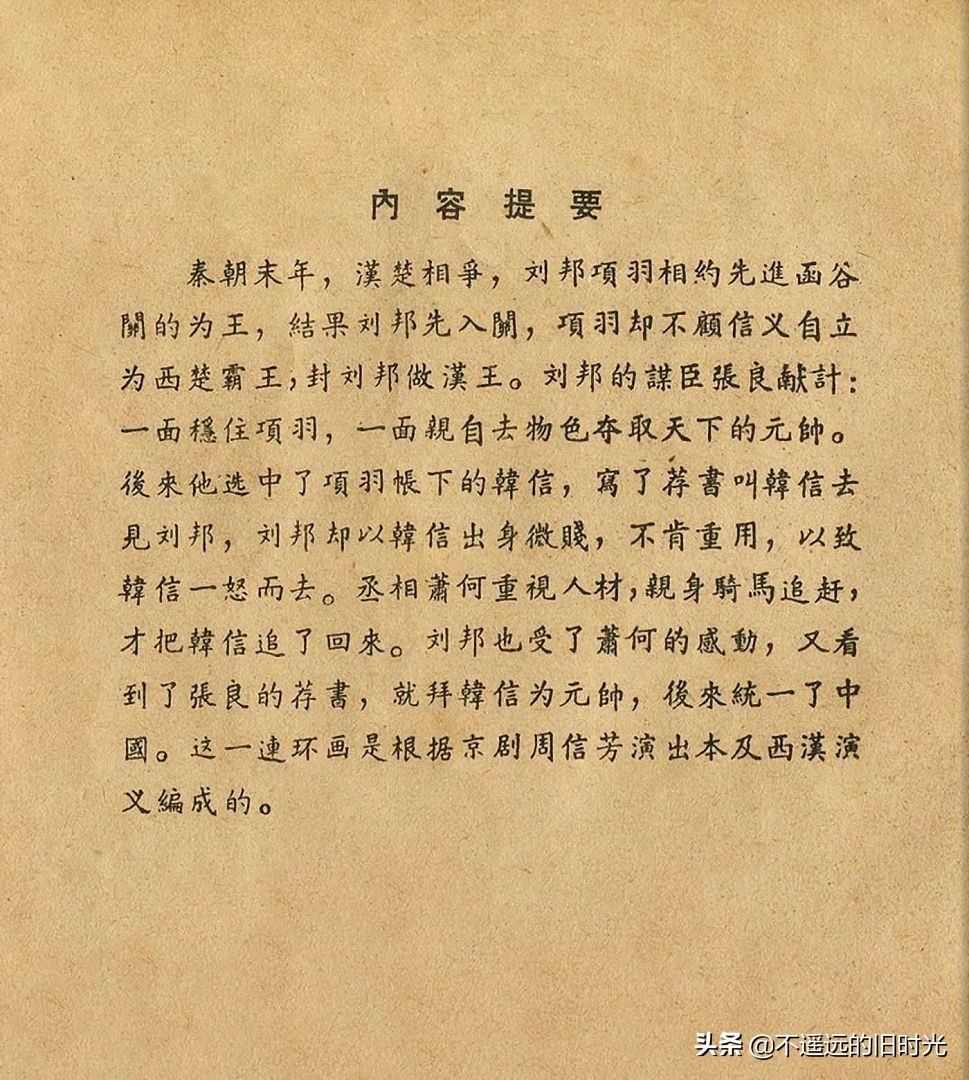 內容提要
秦朝末年，漢楚相爭，刘邦項羽相約先進函谷
關的为王，結果刘邦先入關，項羽却不顧信义自立
为西楚霸王；封刘邦做漢王。刘邦的謀臣張良献計：
一面穩住項羽，一面親自去物色夺取天下的元帥。
後來他选中了項羽帳下的韓信，寫了荐書叫韓信去
見刘邦，刘邦却以韓信出身微賤，不肯重用，以致
韓信一怒而去。丞相蕭何重視人材，親身騎馬追赶，
才把韓信追了回來。刘邦也受了蕭何的感動，又看
到了張良的荐書，就拜韓信为元帥，後來統一了中
國。这一連环画是根据京剧周信芳演出本及西漢演
义編成的。
头条 @不遥远的旧时光